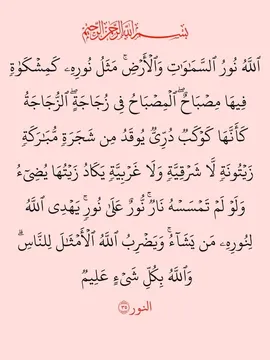 بِسْمِ ٱللَّهِ ٱلرَّحْمَٰنِ ٱلرَّحِيمِ
ٱللَّهُ نُورُ ٱلسَّمَٰوَٰتِ وَٱلْأَرْضِۚ مَثَلُ نُورِهِۦ كَمِشْكَوٰةٍ
فِيهَا مِصْبَاحٌۖ ٱلْمِصْبَاحُ فِى زُجَاجَةٍۖ ٱلزُّجَاجَةُ
كَأَنَّهَا كَوْكَبٌ دُرِّىٌّ يُوقَدُ مِن شَجَرَةٍ مُّبَٰرَكَةٍ
زَيْتُونَةٍ لَّا شَرْقِيَّةٍ وَلَا غَرْبِيَّةٍ يَكَادُ زَيْتُهَا يُضِىٓءُ
وَلَوْ لَمْ تَمْسَسْهُ نَارٌۚ نُّورٌ عَلَىٰ نُورٍۗ يَهْدِى ٱللَّهُ
لِنُورِهِۦ مَن يَشَآءُۚ وَيَضْرِبُ ٱللَّهُ ٱلْأَمْثَٰلَ لِلنَّاسِۗ
وَٱللَّهُ بِكُلِّ شَىْءٍ عَلِيمٌ
النور ٣٥